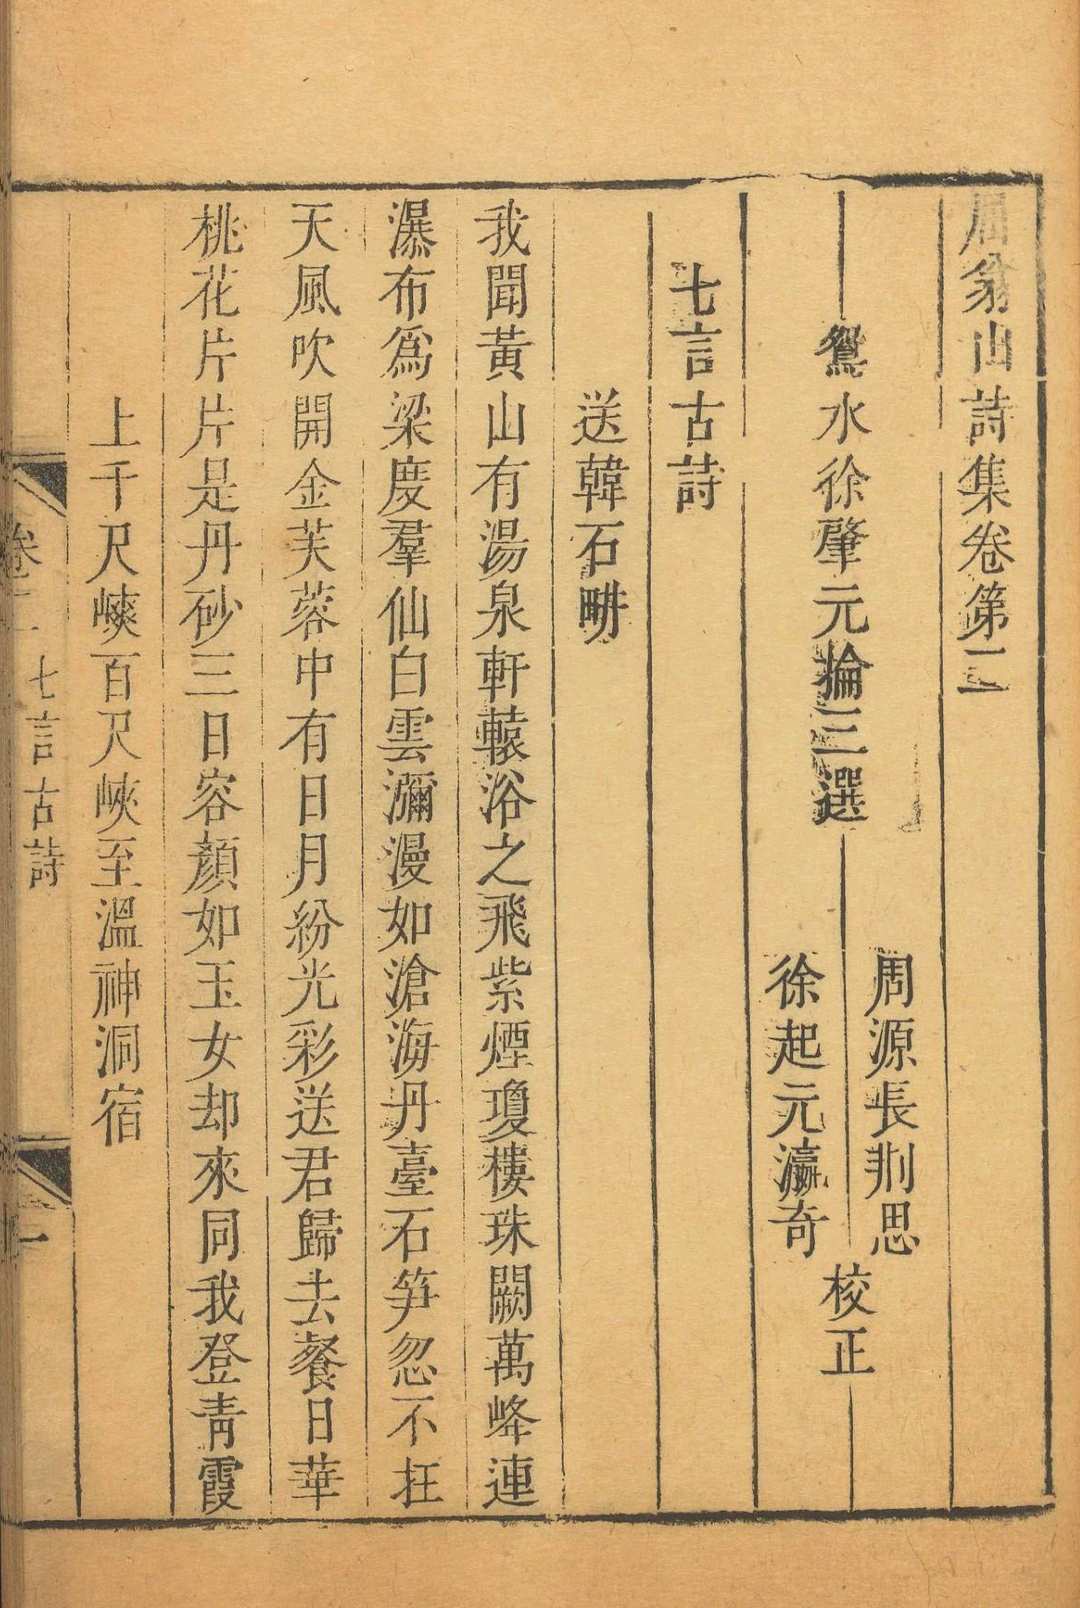 屈翁山詩集卷第二
鴛水徐肇元掄三選
周源長荆思
徐起元瀛奇
校正
七言古詩
送韓石畊
我聞黃山有湯泉軒轅浴之飛紫煙瓊樓珠闕萬峰連
瀑布爲梁度羣仙白雲瀰漫如滄海丹臺石笋忽不在
天風吹開金芙蓉中有日月紛光彩送君歸去餐日華
桃花片片是丹砂三日容顏如玉女却來同我登青霞
上千尺㠔百尺峽至溫神洞宿
卷二 七言古詩 一